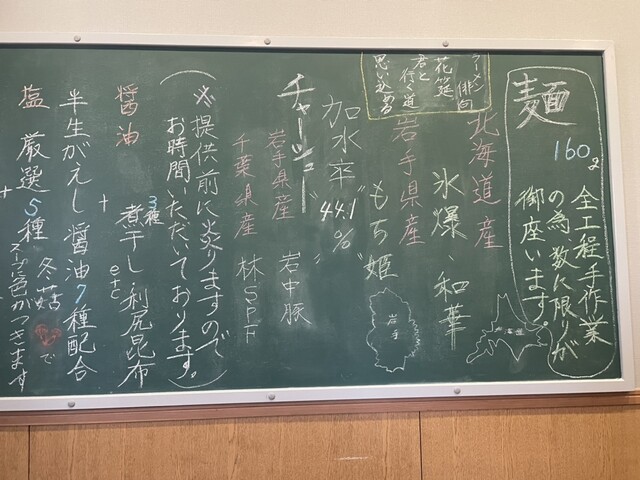 麺 160g
全工程手作業
の為、数に限りが
御座います。
ラーメン
俳句
花筵
君と
行く道
思い出
北海道産
氷爆、和華
岩手県産
もち姫
岩手
加水率 "44.1%"
チャーシュー
岩手県産 岩中豚
千葉県産 林SPF
(※提供前に炎りますので
お時間いただいております。)
醤油 3種煮干し、利尻昆布
+ etc
半生がえし 醤油7種配合
塩 厳選5種 冬菇で
+ スープに色がつきます